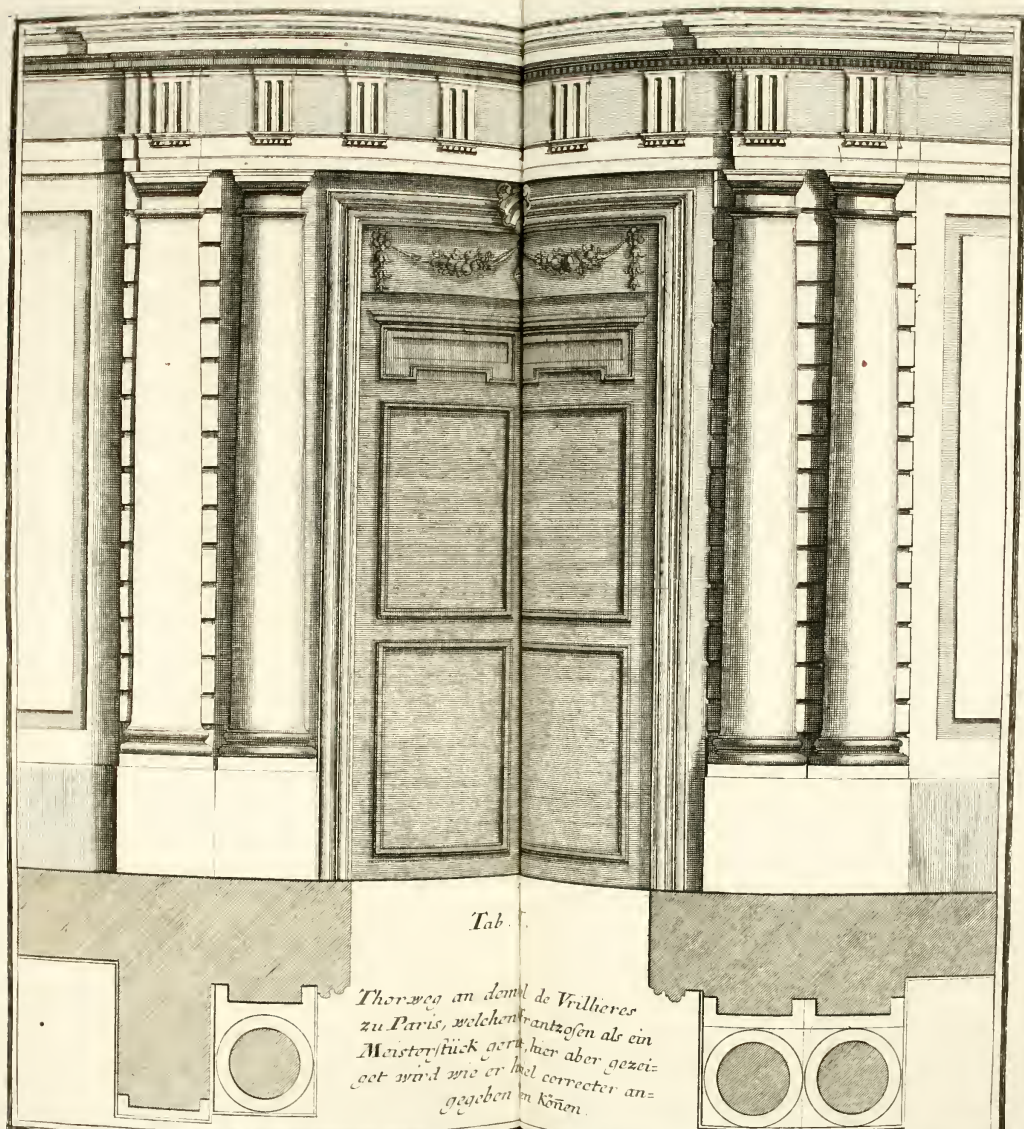 Tab.
Thorweg an dem l de Vrillieres
zu Paris, welchen rantzosen als ein
Meisterstück ger t, hier aber gezei=
get wird wie er h el correcter an=
gegeben en Kön̄en.